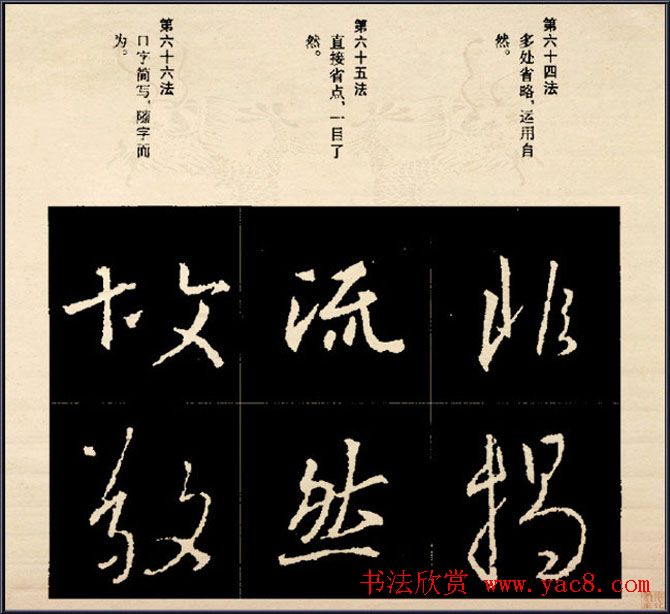 第六十四法
多处省略，运用自
然。
第六十五法
直接省点，一目了
然。
第六十六法
口字简写，随字而
为。
非
流
然
故
敬
书法欣赏 www.yac8.com